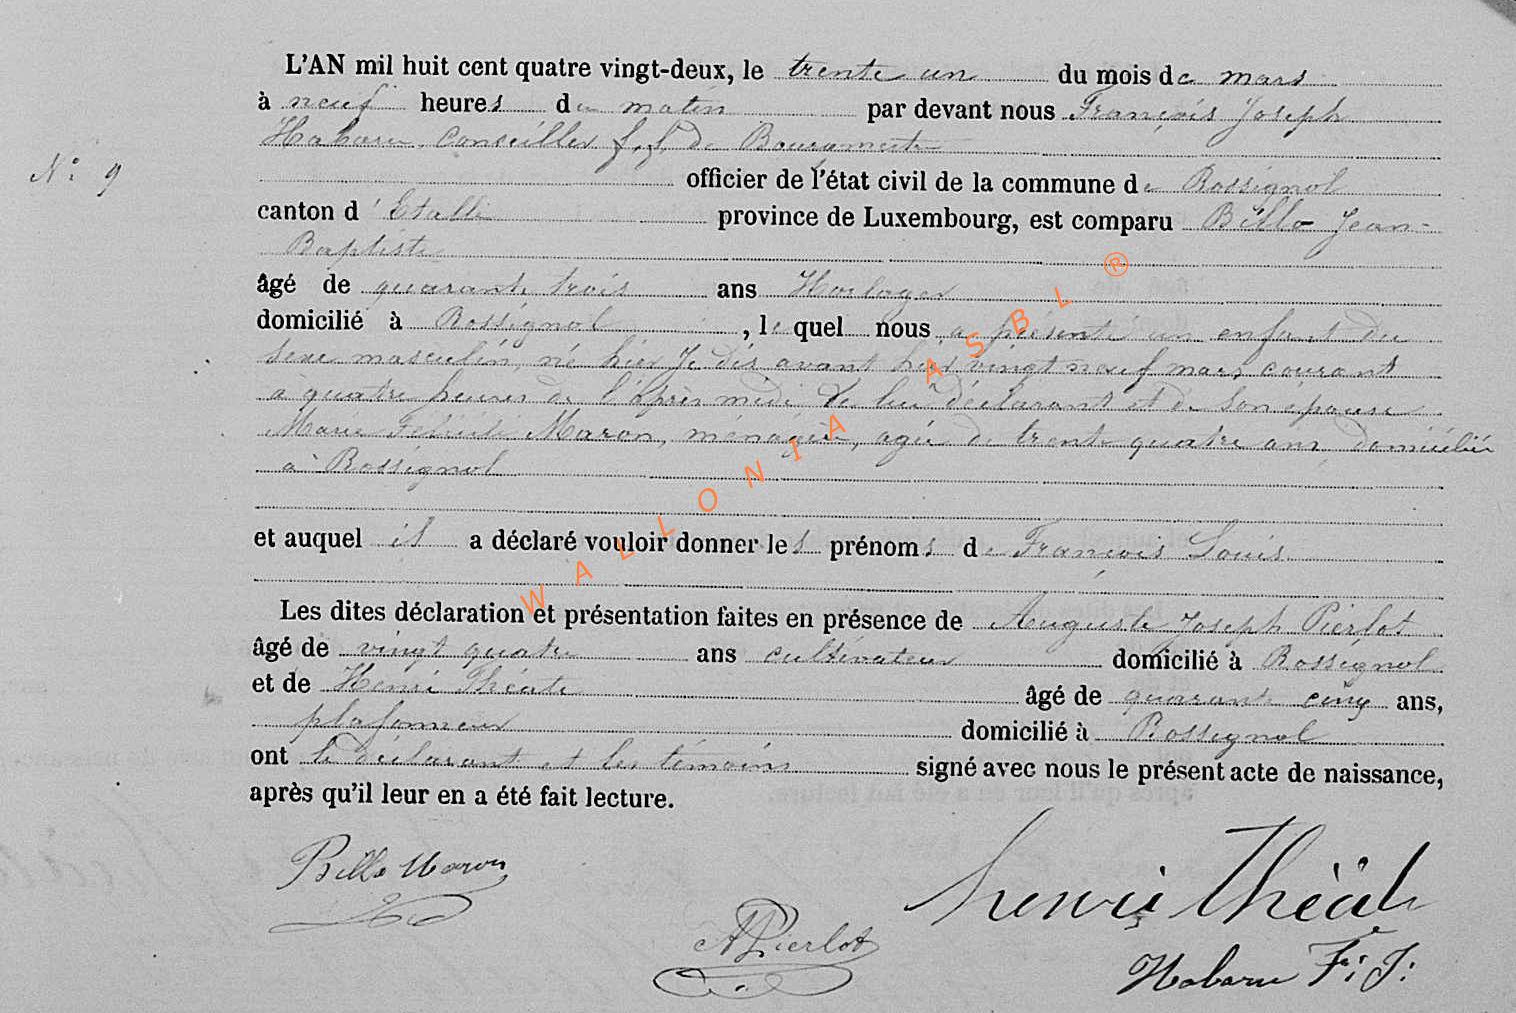 L'AN mil huit cent quatre vingt-deux, le trente un du mois de mars
à neuf heures du matin par devant nous François Joseph
Habaru, Conseiller f.f. de Bourgmestre
N° 9
officier de l'état civil de la commune de Rossignol
canton d'Etalle province de Luxembourg, est comparu Bille Jean-
Baptiste
âgé de quarante trois ans Horloger
domicilié à Rossignol, lequel nous a présenté un enfant du
sexe masculin, né hier Je dis avant hier vingt neuf mars courant
à quatre heures de l'après midi de lui déclarant et de son épouse
Marie Félicité Maron, ménagère, agée de trente quatre ans, domiciliée
à Rossignol
et auquel il a déclaré vouloir donner les prénoms de François Louis
Les dites déclaration et présentation faites en présence de Auguste Joseph Pierlot
âgé de vingt quatre ans cultivateur domicilié à Rossignol
et de Henri Théate âgé de quarante cinq ans,
plafonneur domicilié à Rossignol
ont le déclarant et les témoins signé avec nous le présent acte de naissance,
après qu'il leur en a été fait lecture.
Bille Maron
henri Théâte
A Pierlot
Habaru F. J.
WALLONIA ASBL ®